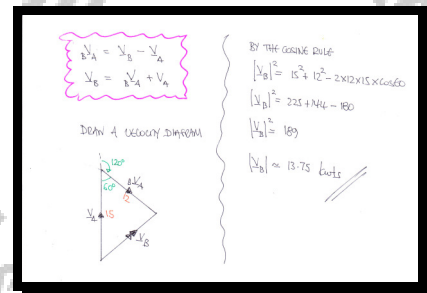 BVA = VB - VA
VB = BVA + VA
DRAW A VELOCITY DIAGRAM
120°
60°
BVA
12
VA 15
VB
BY THE COSINE RULE
|VB|² = 15² + 12² - 2×12×15×cos60
|VB|² = 225 + 144 - 180
|VB|² = 189
|VB| ≈ 13.75 knots